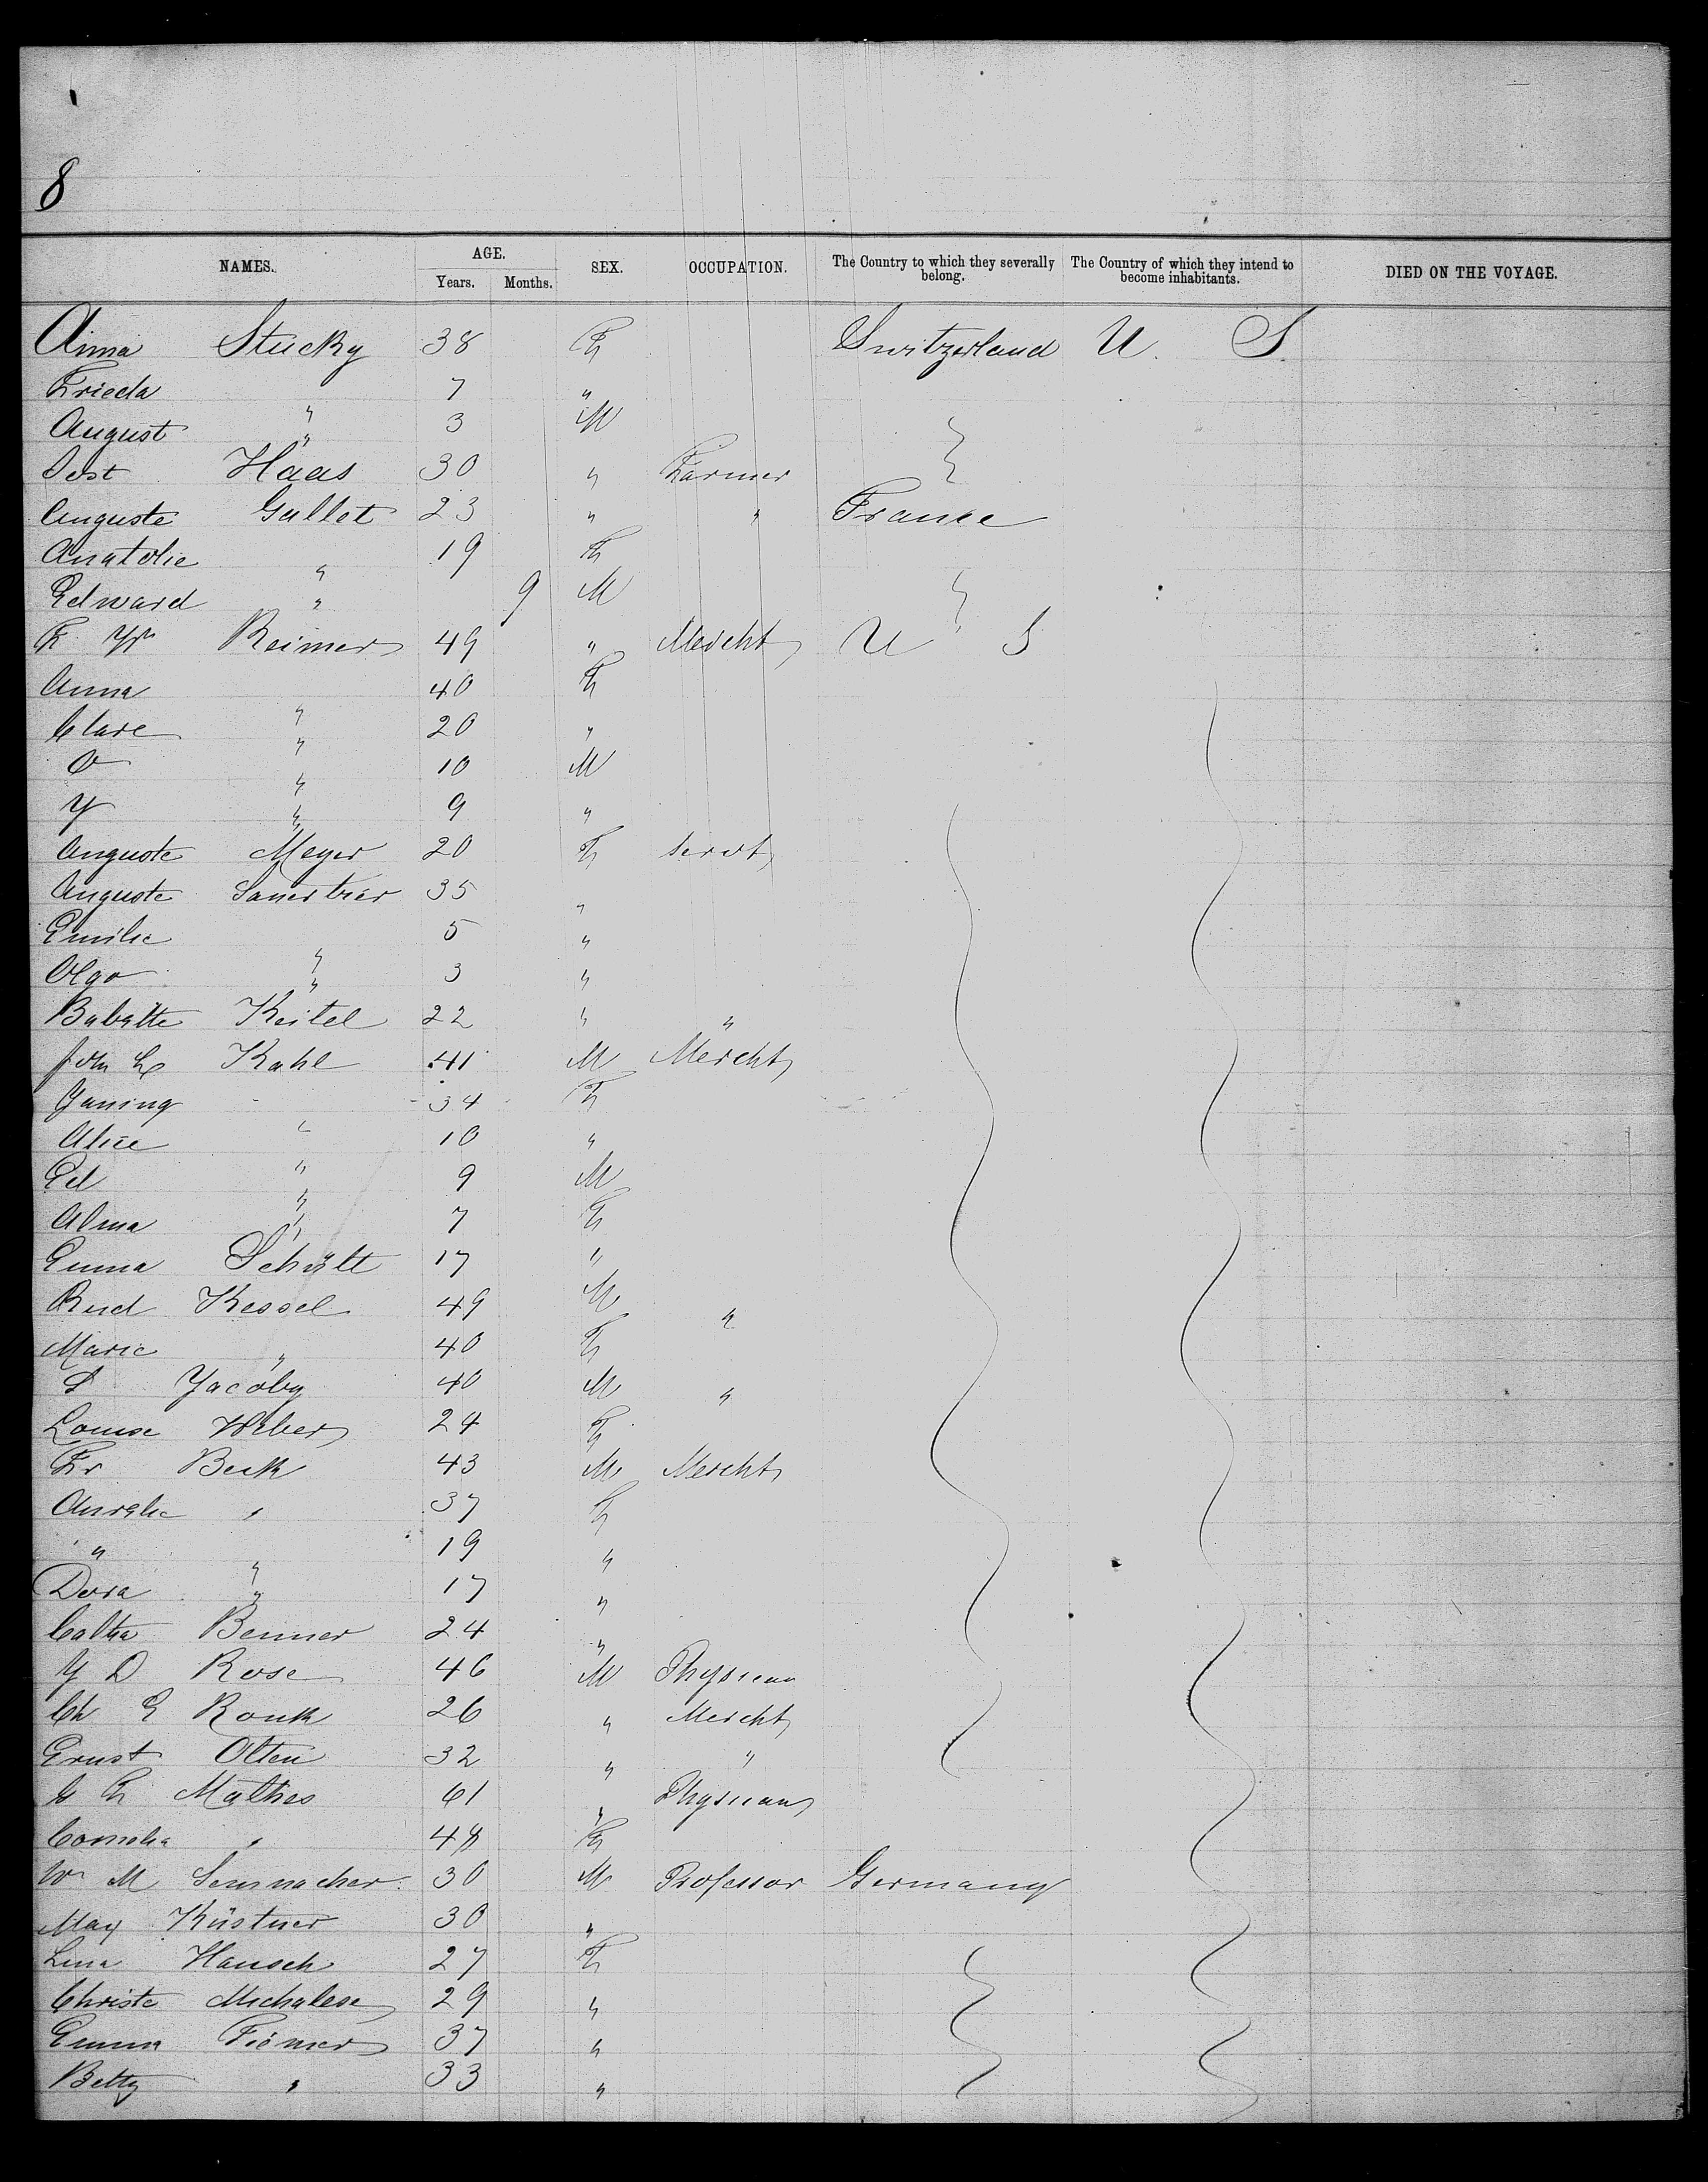 8
NAMES. AGE. Years. Months. SEX. OCCUPATION. The Country to which they severally belong. The Country of which they intend to become inhabitants. DIED ON THE VOYAGE.
Anna Stucky 38 F Switzerland U. S.
Frieda " 7 "
August " 3 M
Haas 30 " Farmer
Auguste Gallet 23 " " France
Anatolie " 19 F
Edward " 9 M
F W Reimer 49 " Mercht U S
Anna " 40 F
Clare " 20 "
O " 10 M
Y " 9 "
Auguste Meyer 20 F Servt
Auguste 35 "
Emilie " 5 "
Olga " 3 "
Babette Keitel 22 " "
Kahl 41 M Mercht
" 34 F
Alice " 10 "
Ed " 9 M
Alma " 7 F
Emma Schült 17 "
Rud Kessel 49 M "
Marie " 40 F
S Jacoby 40 M "
Louise Weber 24 F
Fr Beck 43 M Mercht
Aurelie " 37 F
" " 19 "
Dora " 17 "
Catha Benner 24 "
J D Rose 46 M Physician
Ch E Ronk 26 " Mercht
Ernst Olten 32 " "
Mathes 61 " Physician
Cornelia " 48 F
W M 30 M Professor Germany
Max Küstner 30 "
Lina Hausch 27 F
Christe Michalese 29 "
Emma 37 "
Betty " 33 "